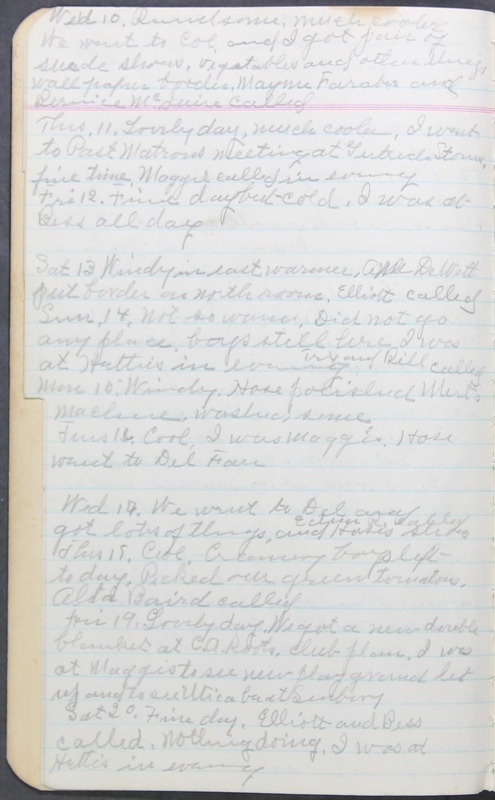 Wed 10, Rained some, much cooler
We went to Col, and I got pair of
suede shoes, vegetables and other things
wall paper border. Mayme Faraber and
Bernice McGuire called
Thus, 11. Lovely day, much cooler, I went
to Past Matrons meeting at Gertrude Stones,
fine time, Maggie called in evening
Fri 12. Fine day but cold. I was at
Bess all day
Sat 13 Windy in east warmer, DeWitt
put border on north room. Elliott called
Sun, 14, Not so warm, Did not go
any place, boys still here, I was
at Hetties in evening Try and Bill called
Mon 15, Windy. Hose polished Merts
machine, washed some
Tues 16 Cool, I was Maggies. Hose
went to Del Fair
Wed 17. We went to Del and
got lots of things, and Hoses
Thus 18. Cool, Creamery boys left
today. Picked our green tomatoes.
Alta Baird called
Fri 19. Lovely day. We got a new double
blanket at C.A. Roots, club plan. I was
at Maggies to see new play ground lit
up and to see Utica beat Sunbury
Sat 20. Fine day. Elliott and Bess
called. Nothing doing. I was at
Hetties in evening